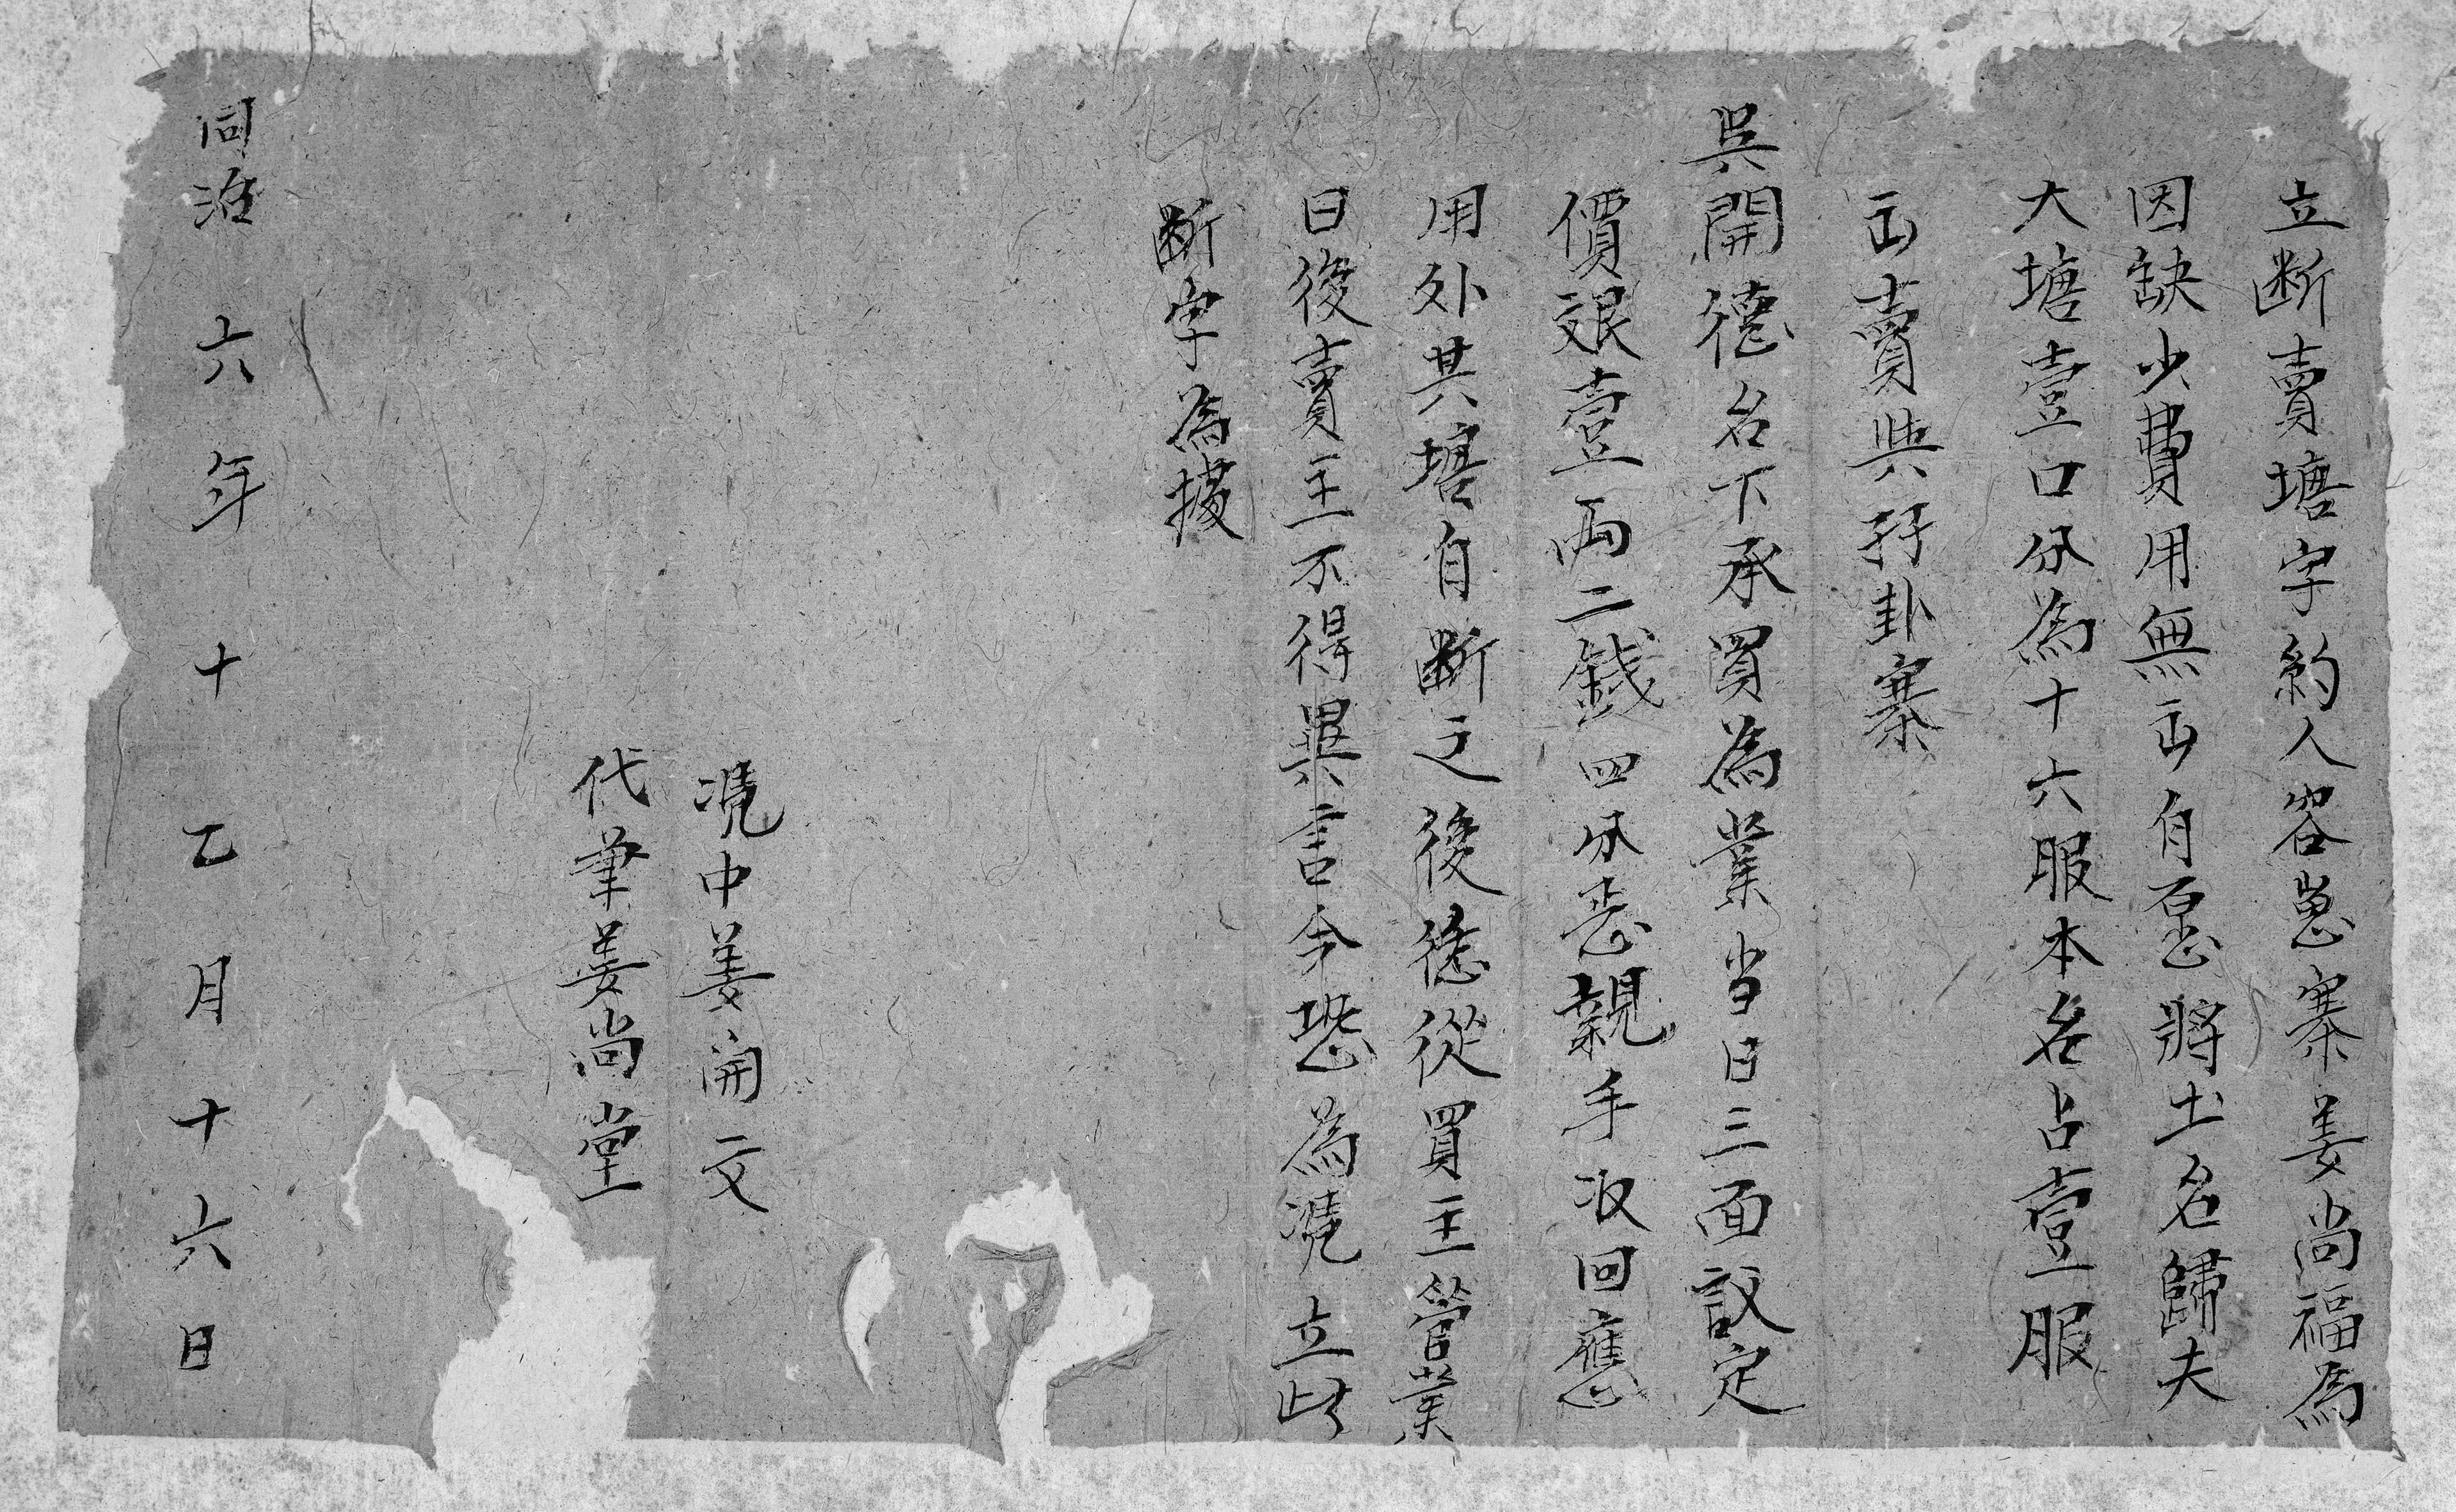 立断賣塘字約人岩崽寨姜尚福為
因缺少費用無出自愿將土名歸夫
大塘壹口分為十六服本名占壹服
出賣與孖卦寨
吳開德名下承買為業当日三面議定
價艮壹両二錢四分恙親手收回應
用外其塘自断之後德從買主營業
日後賣主不得異言今恐為凴立此
断字為據
凴中姜開文
代筆姜尚堂
同治六年十乙月十六日